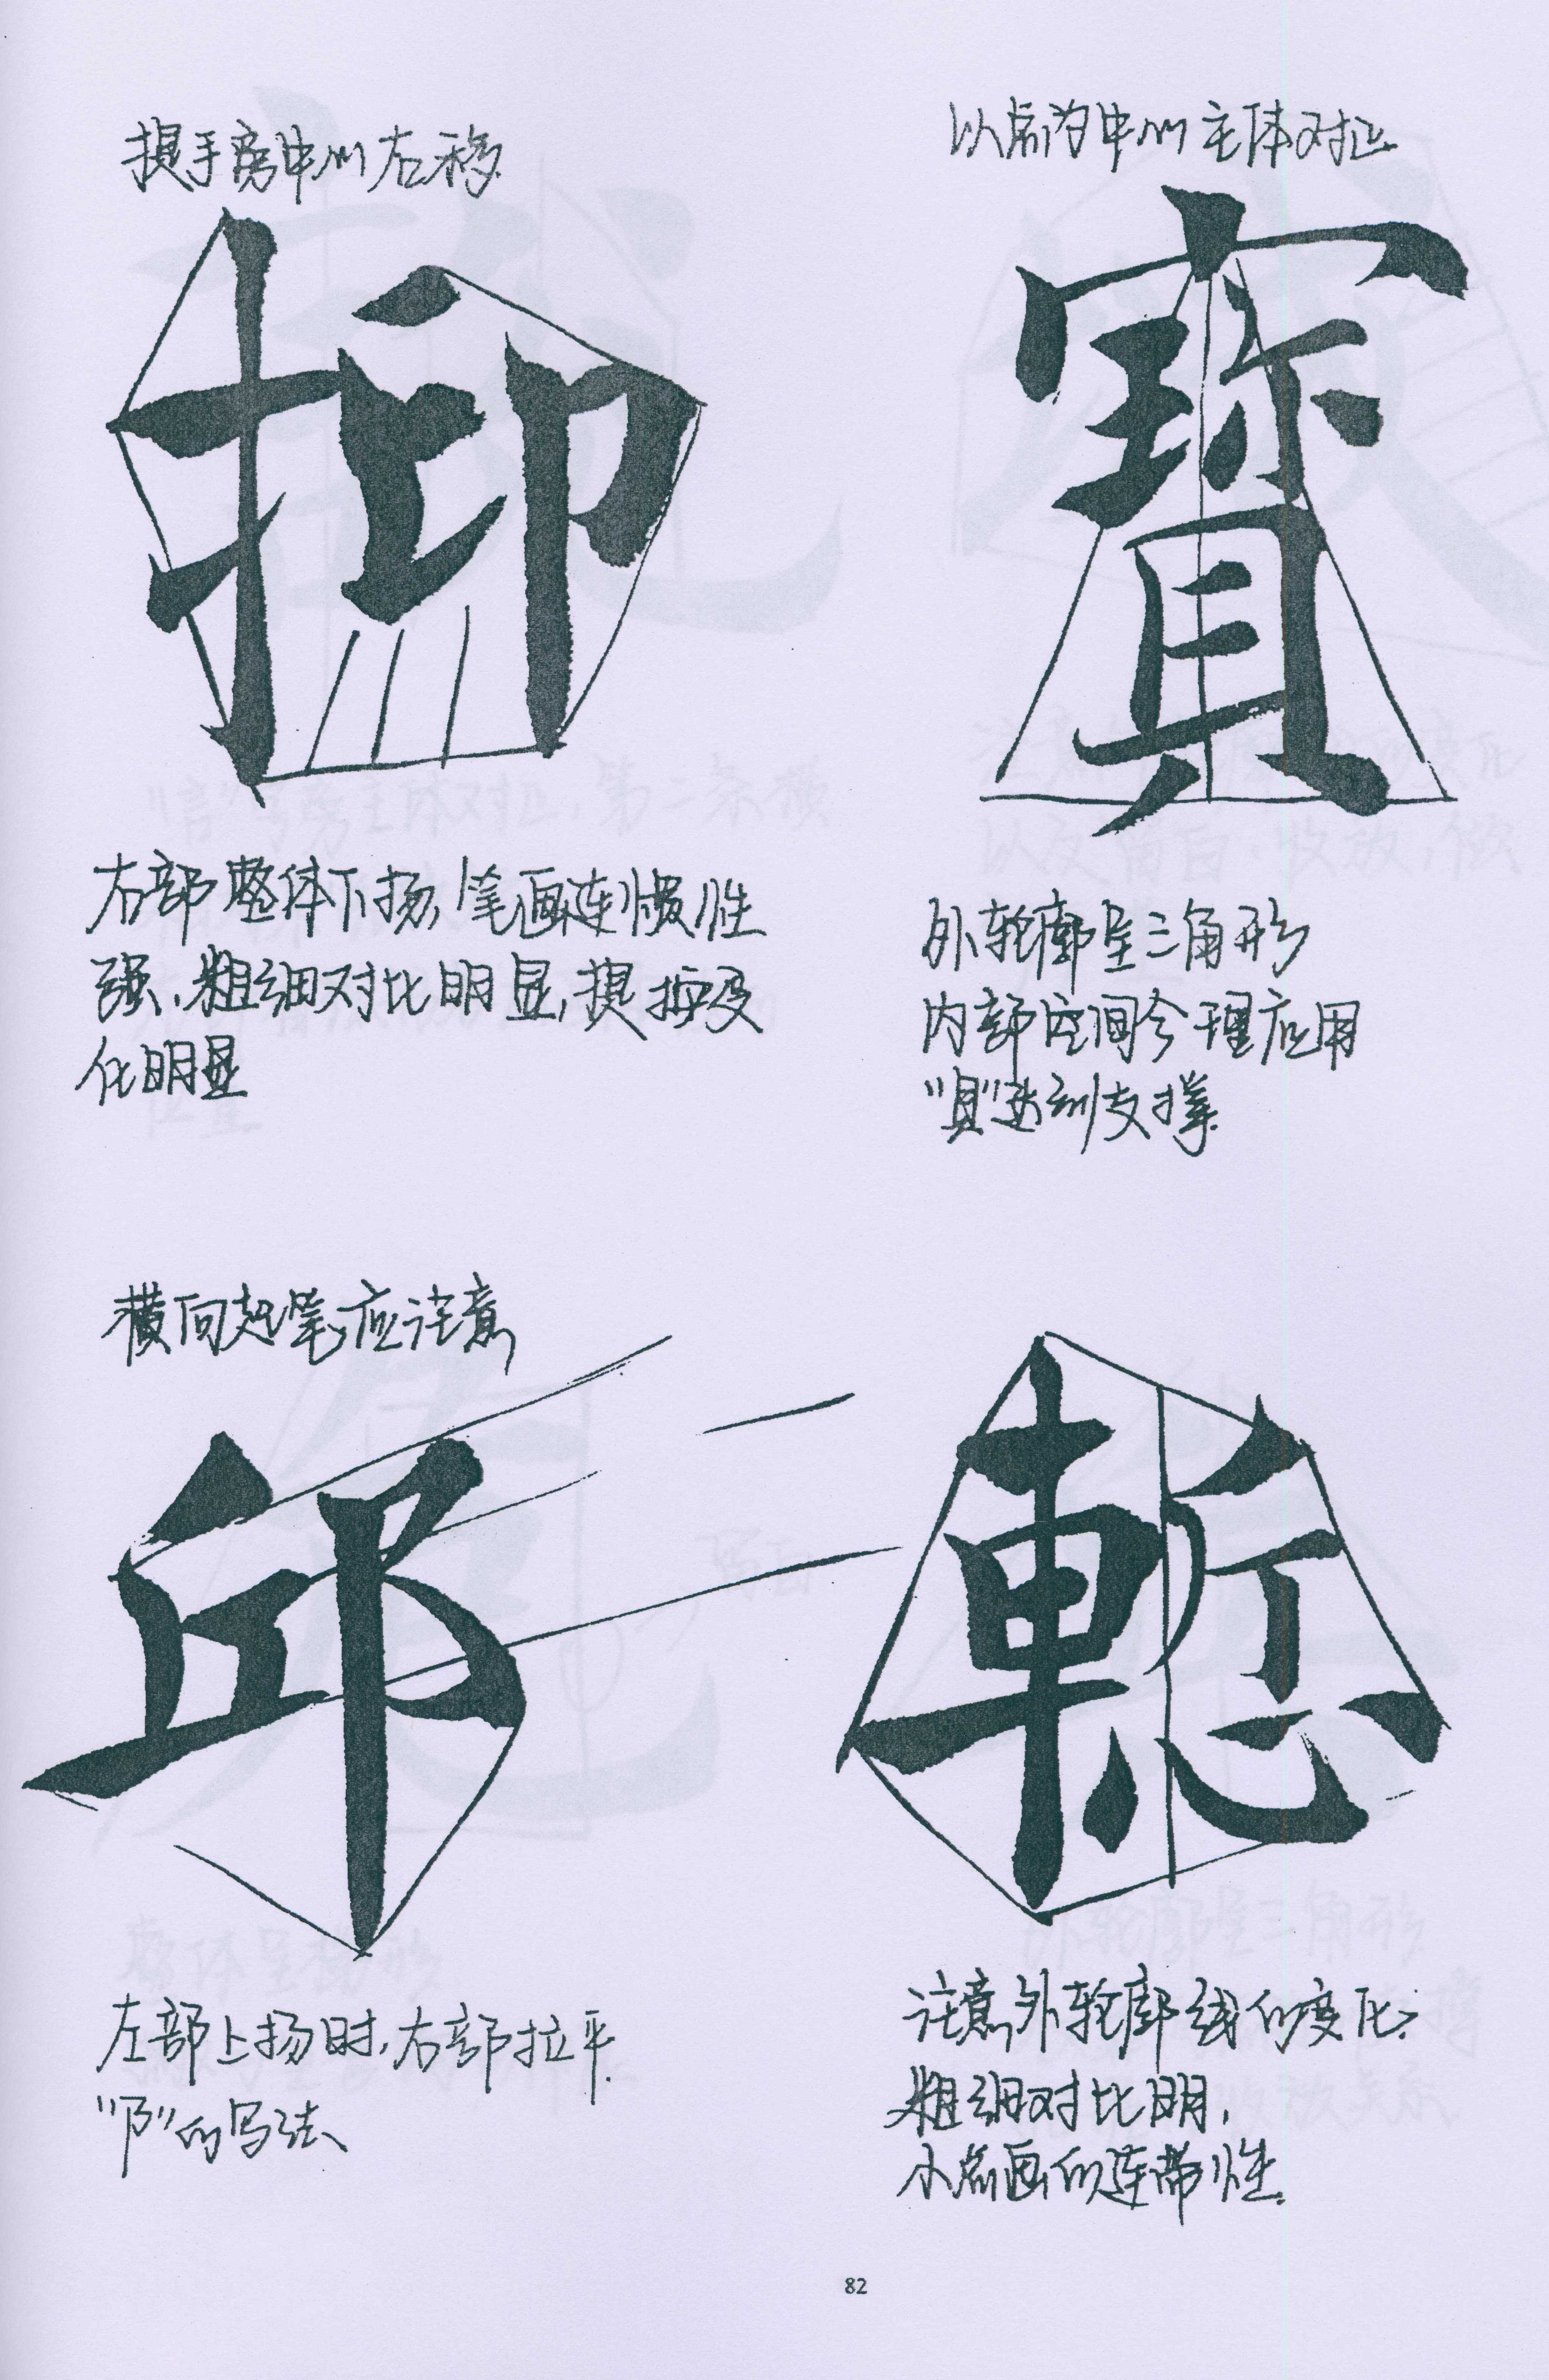 提手旁中心右移.
抑
右部整体下扬,笔画连惯性
强、粗细对比明显,提按变
化明显
以点为中心主体对正.
寳
外轮廓呈三角形
内部空间合理应用
"貝"达到支撑.
横向起笔应注意
邱
左部上扬时,右部拉平.
"阝"的写法、
慙
注意外轮廓线的变化.
粗细对比明,
小点画的连带性.
82